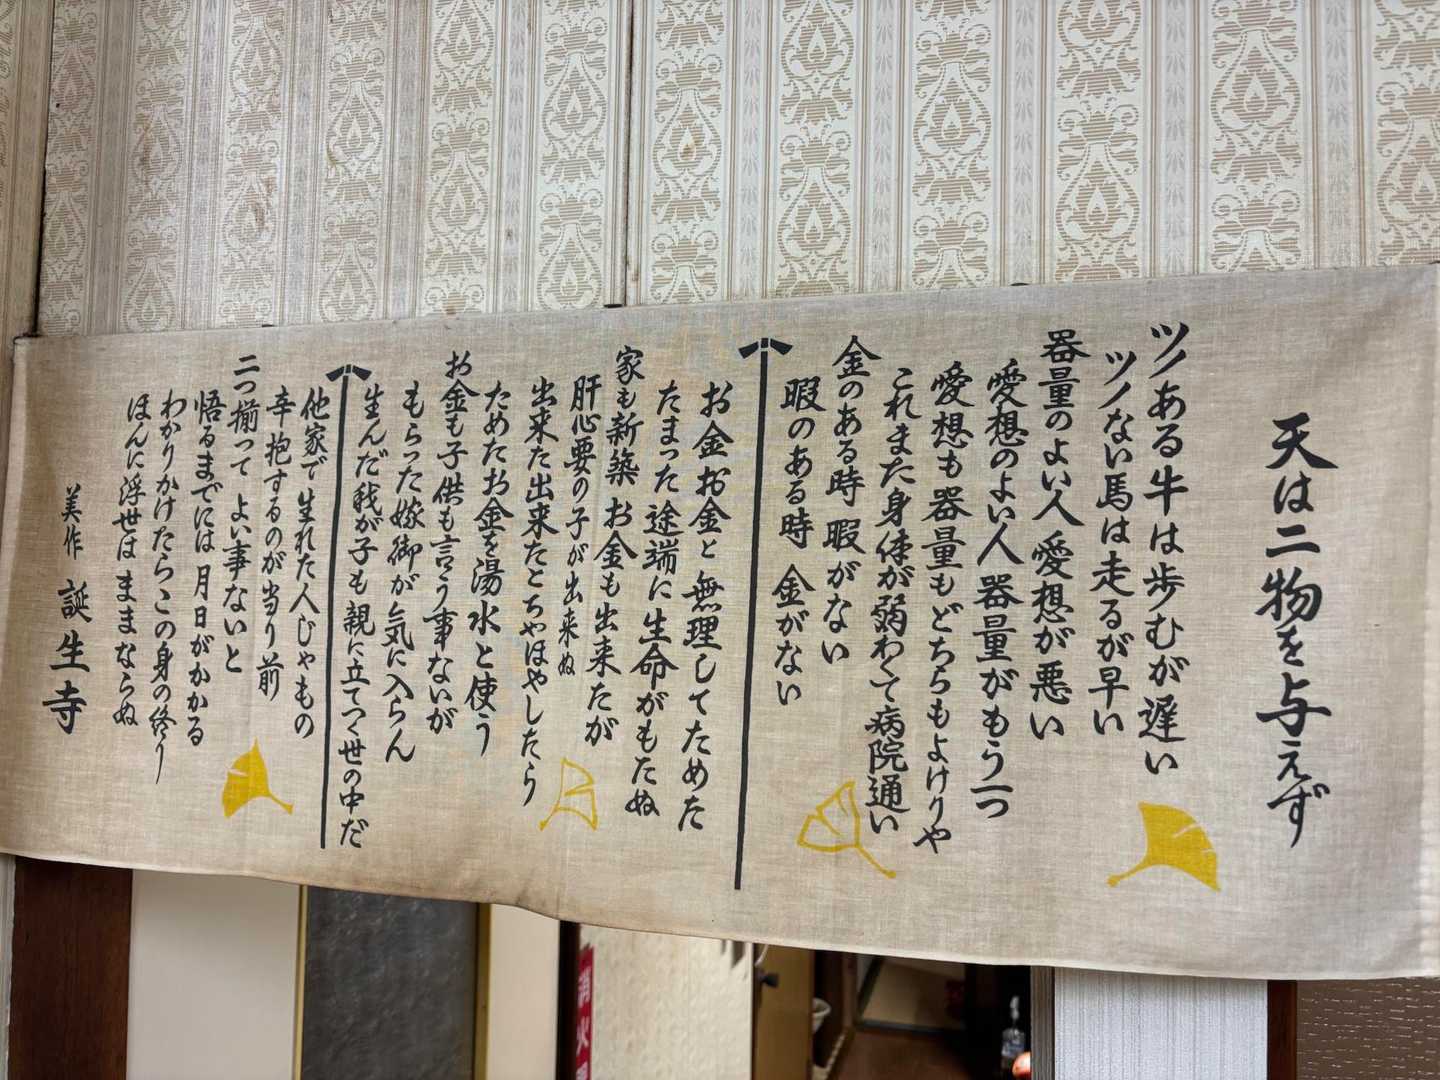 天は二物を与えず
ツノある牛は歩むが遅い
ツノない馬は走るが早い
器量のよい人 愛想が悪い
愛想のよい人 器量がもう一つ
愛想も器量もどちらもよけりや
これまた身体が弱わくて病院通い
金のある時 暇がない
暇のある時 金がない
お金お金と 無理してためた
たまった途端に生命がもたぬ
家も新築 お金も出来たが
肝心要の子が出来ぬ
出来た出来たとちやほやしたら
ためたお金を湯水と使う
お金も子供も言う事ないが
もらった嫁御が気に入らん
生んだ我が子も親に立てつく世の中だ
他家で生れた人じゃもの
辛抱するのが当り前
二つ揃って よい事ないと
悟るまでには 月日がかかる
わかりかけたらこの身の終り
ほんに浮世は ままならぬ
美作 誕生寺
消火